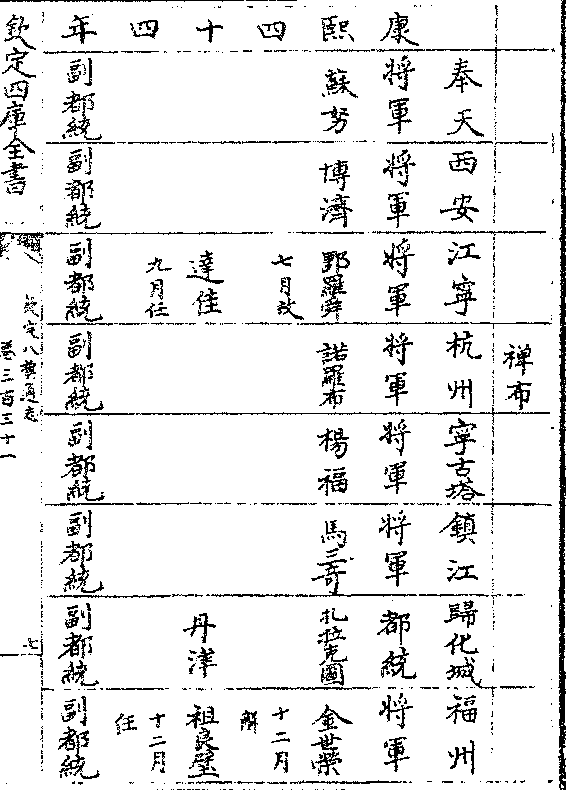 康熙四十四年
奉天
將軍
蘇努
副都統
西安
將軍
博濟
副都統
江寧
將軍
鄂羅舜
七月
達佳
九月任
副都統
禆布
杭州
將軍
諾羅布
副都統
寧古塔
將軍
楊福
副都統
鎮江
將軍
馬三奇
副都統
歸化城
都統
扎拉克圖
丹津
副都統
福州
將軍
金世榮
十二月解
祖良璧
十二月任
副都統
欽定四庫全書
欽定八旗通志
卷三百三十一
七